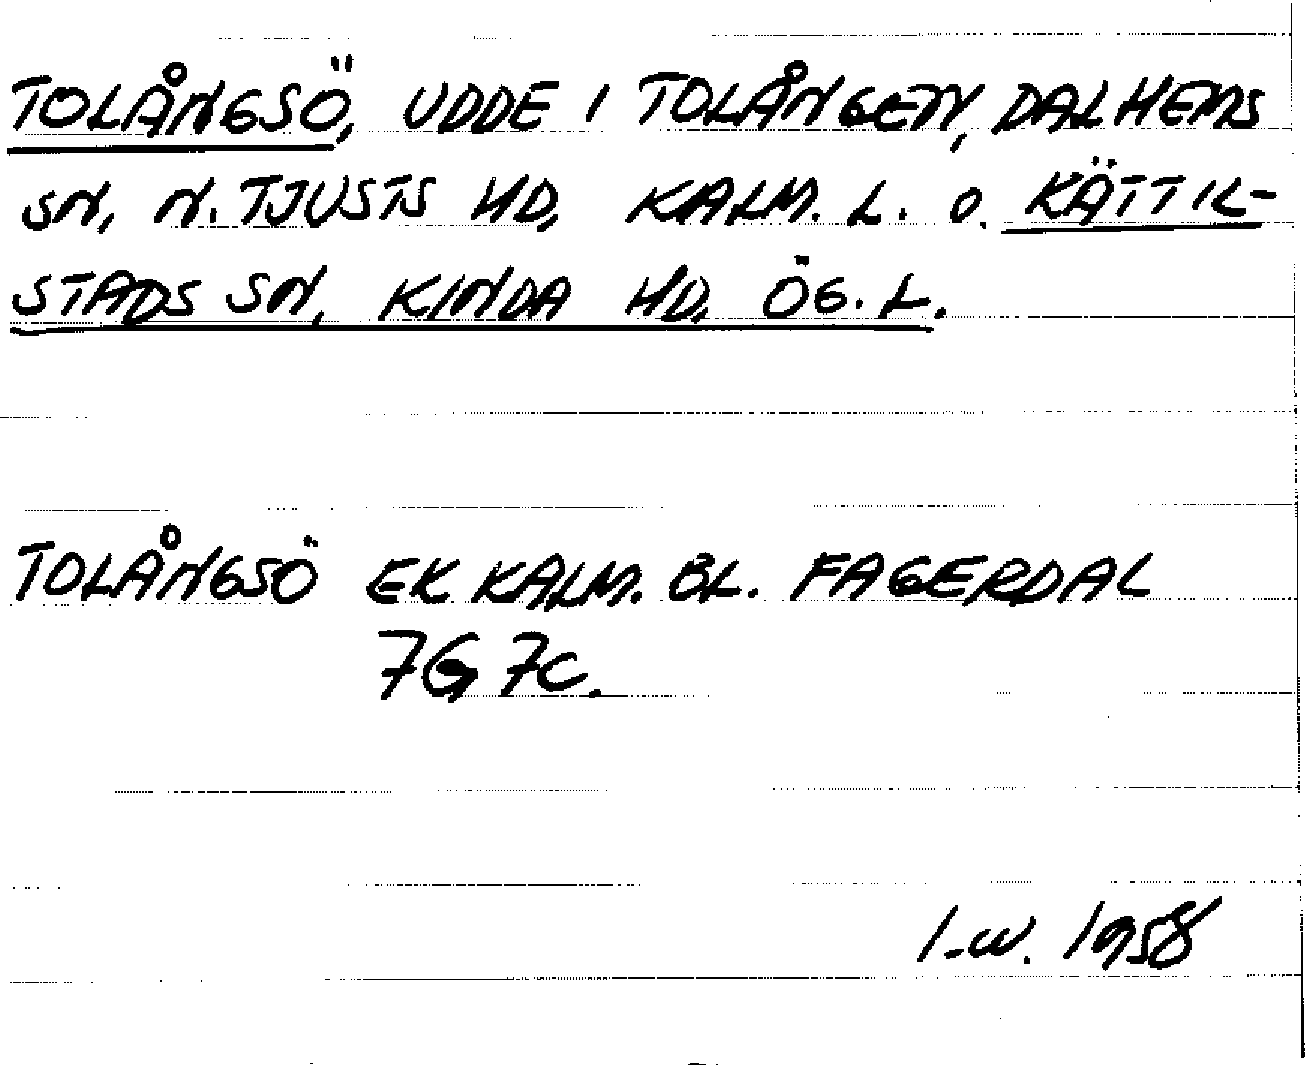 TOLÅNGSÖ, UDDE I TOLÅNGEN, DALHEMS
SN, N. TJUSTS HD, KALM. L. O. KÄTTIL-
STADS SN, KINDA HD, ÖG. L.
TOLÅNGSÖ EK KALM. BL. FAGERDAL
7G 7C.
I-W. 1958